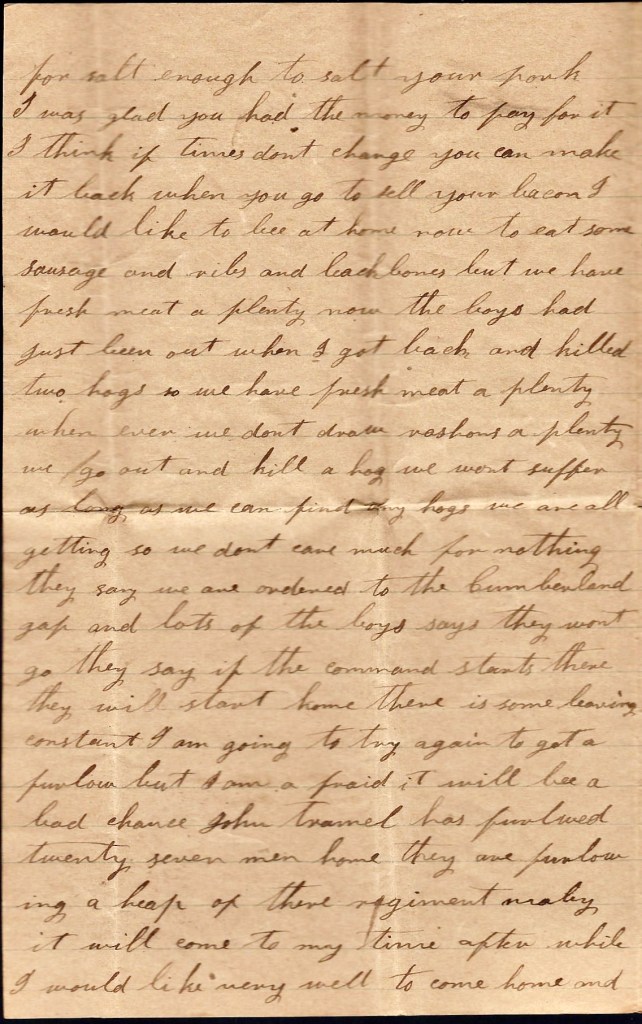 for salt enough to salt your pork
I was glad you had the money to pay for it
I think if times dont change you can make
it back when you go to sell your bacon I
would like to bee at home now to eat some
sausage and ribs and backbones but we have
fresh meat a plenty now the boys had
just been out when I got back and killed
two hogs so we have fresh meat a plenty
when ever we dont draw rashons a plenty
we go out and kill a hog we wont suffer
as long as we can find any hogs we are all
getting so we dont care much for nothing
they say we are ordered to the Cumberland
gap and lots of the boys says they wont
go they say if the command starts there
they will start home there is some leaving
constant I am going to try again to get a
furlow but I am a fraid it will bee a
bad chance John Tramel has furlwed
twenty seven men home they are furlow
ing a heap of there regiment maby
it will come to my time after while
I would like very well to come home and